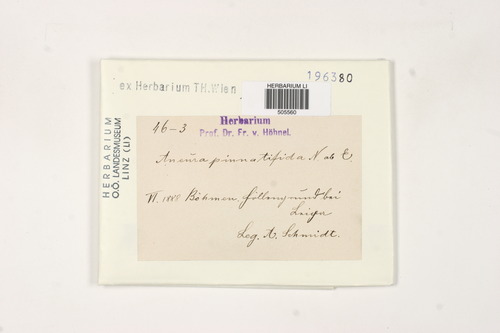 ex Herbarium TH.Wien
196380
HERBARIUM LI
505560
HERBARIUM
O.Ö. LANDESMUSEUM
LINZ (LI)
Herbarium
Prof. Dr. Fr. v. Höhnel.
46-3
Aneura pinnatifida N ab E.
VI. 1888 Böhmen Höllengrund bei
Leipa
Leg. A. Schmidt.